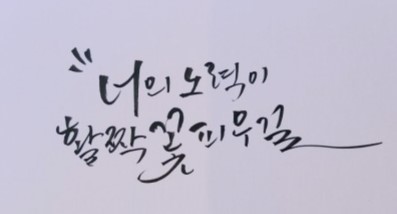 너의 노력이
활짝 꽃 피우길